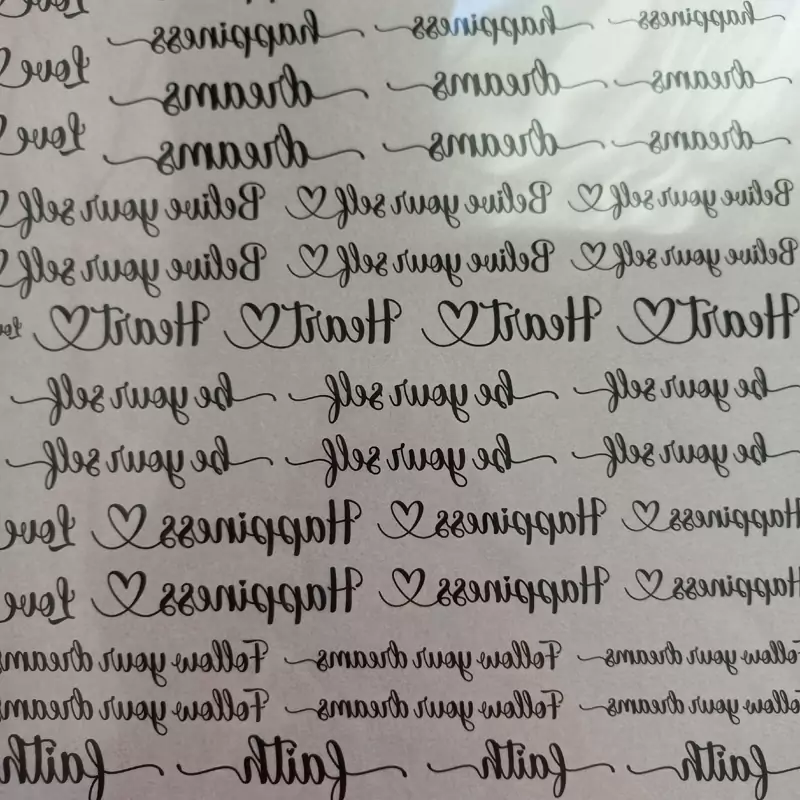 happiness happiness happiness
dreams dreams dreams Love
dreams dreams dreams Love
Belive your self Belive your self Belive your self
Belive your self Belive your self Belive your self
Heart Heart Heart Heart
be your self be your self be your self
be your self be your self be your self
Happiness Happiness Happiness Love
Happiness Happiness Happiness Love
Follow your dreams Follow your dreams Follow your dreams
Follow your dreams Follow your dreams Follow your dreams
faith faith faith faith